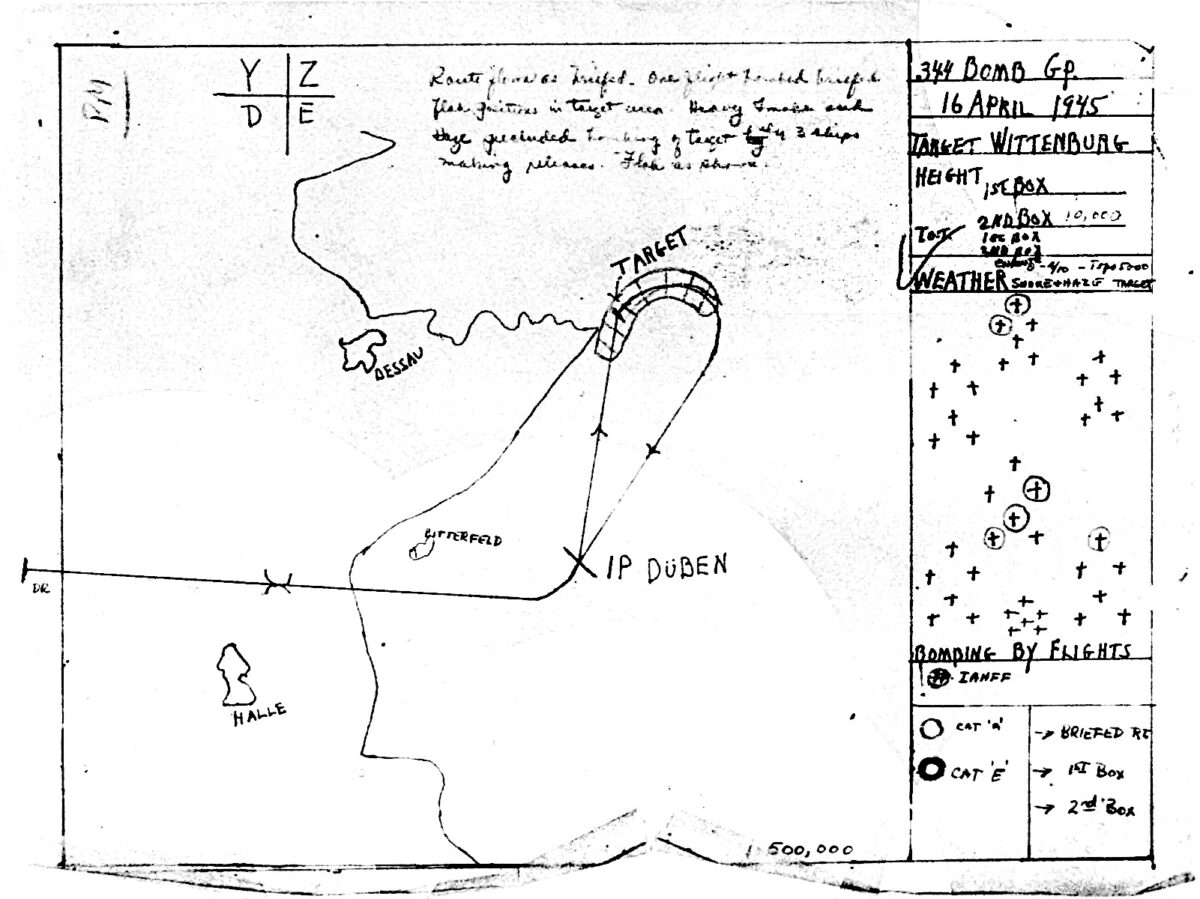 PM
Y Z
D E
Route flown as briefed. One flight bombed briefed
flak positions in target area. Heavy smoke and
Haze precluded bombing of target 3 ships
making releases. Flak as shown.
TARGET
DESSAU
BITTERFELD
IP DÜBEN
DR
HALLE
500,000
344 BOMB GP.
16 APRIL 1945
TARGET WITTENBURG
HEIGHT 1ST BOX
2ND BOX 10,000
1ST BOX
2ND BOX
WEATHER SMOKE + HAZE TARGET
BOMBING BY FLIGHTS
CAT 'A'
CAT 'E'
→ BRIEFED RT
→ 1ST BOX
→ 2nd BOX